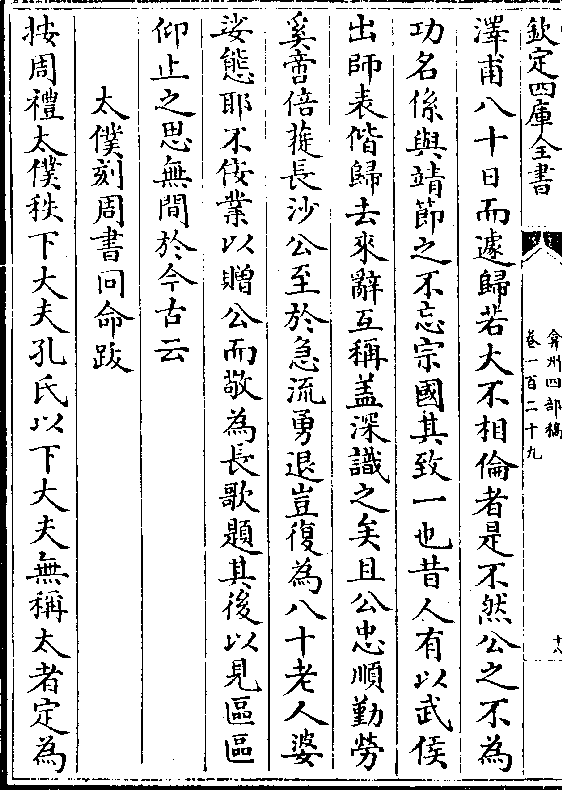 欽定四庫全書
弇州四部稿
卷一百二十九
十八
澤甫八十日而遽歸若大不相倫者是不然公之不為
功名係與靖節之不忘宗國其致一也昔人有以武侯
出師表偕歸去來辭互稱盖深識之矣且公忠順勤勞
奚啻倍蓰長沙公至於急流勇退豈復為八十老人婆
娑態耶不佞業以贈公而敬為長歌題其後以見區區
仰止之思無間於今古云
太僕刻周書冏命跋
按周禮太僕秩下大夫孔氏以下大夫無稱太者定為